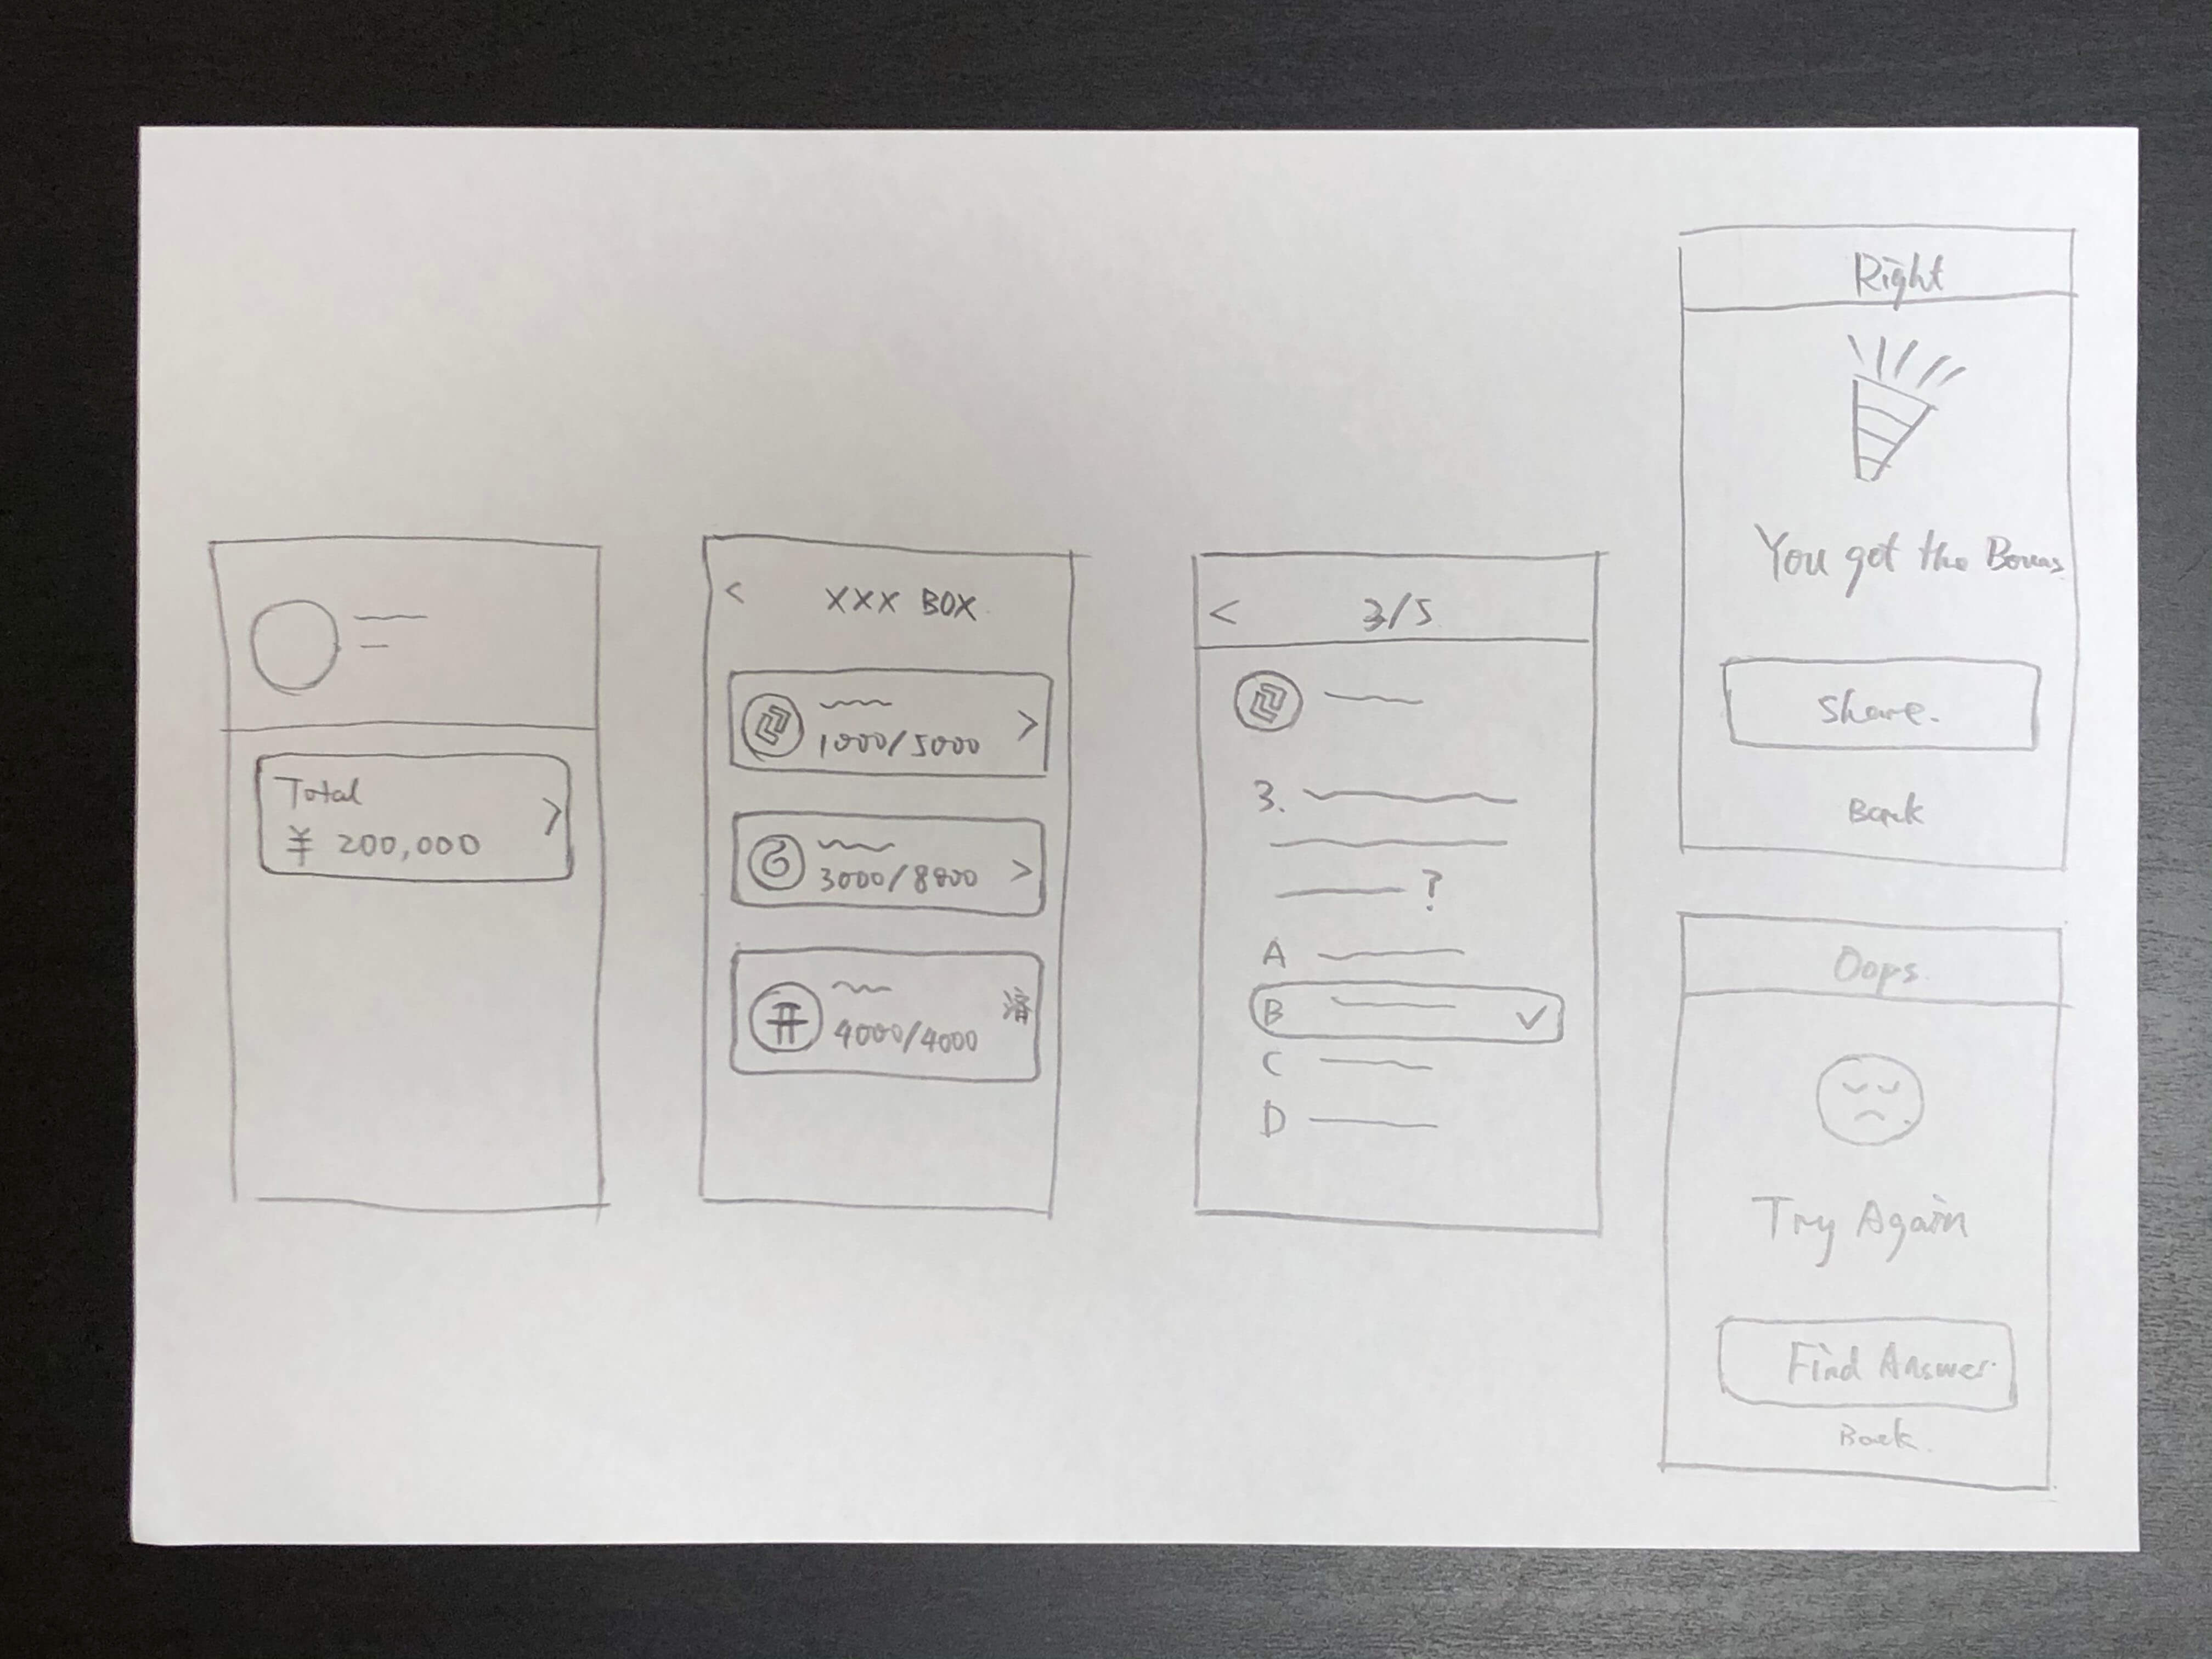 Total
¥ 200,000
< XXX BOX
1000/5000 >
3000/8000 >
4000/4000 済
< 3/5
3.
?
A
B ✓
C
D
Right
You get the Bonus
Share.
Back
Oops.
Try Again
Find Answer.
Back.